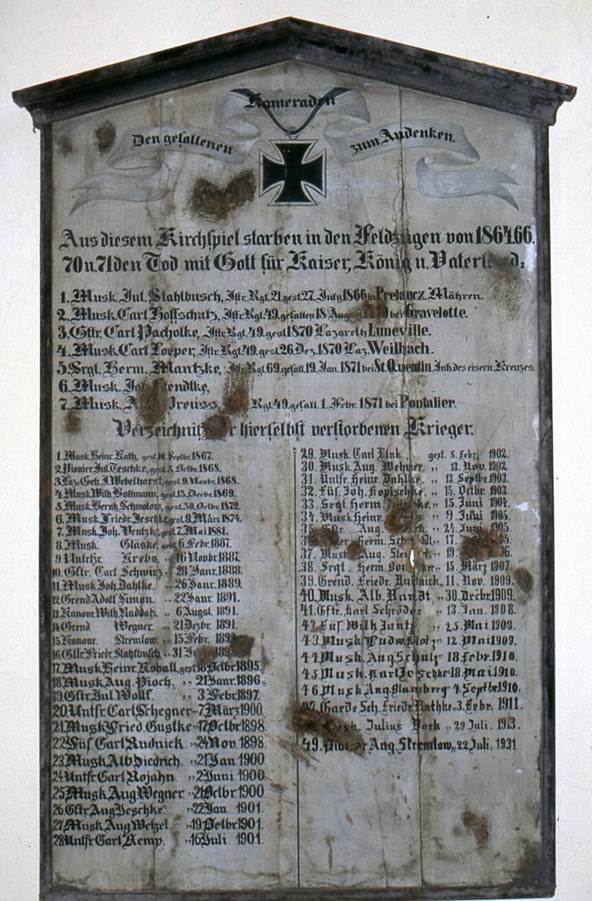 Kameraden
Den gefallenen zum Andenken.
Aus diesem Kirchspiel starben in den Feldzügen von 1864.66.
70 u. 71 den Tod mit Gott für Kaiser, König u. Vaterland:
1. Musk. Jul. Stahlbusch, Iftr. Rgt. 21. gest. 27. July 1866 in Prelancz. Mähren.
2. Musk. Carl Hoffschulz, Iftr. Rgt. 49. gefallen 18 Aug. bei Gravelotte.
3. Gftr. Carl Pacholke, Iftr. Rgt. 49. gest 1870 Lazareth Luneville.
4. Musk. Carl Iftr. Rgt. 49. gest 26. Dez. 1870 Laz. Weilbach.
5. Srgt. Herm. Mantzke, Iftr. Rgt. 69. gefall. 19. Jan. 1871 bei St. Quentin. Inh. des eisern. Kreuzes.
6. Musk. Joh.
7. Musk. Preuss Rgt. 49. gefall. 1. Febr. 1871 bei Pontalier.
Verzeichniß der hierselbst verstorbenen Krieger.
1. Musk. Heinr. Rath, gest. 1867.
2. Pionier Jul. Teschke, gest. 5. Octbr. 1868.
3. gest. 9. Novbr. 1868.
4. Musk. Wilh. gest. 15. Decbr. 1869.
5. Musk. Bernh. Schmolow, gest. 30. Octbr. 1872.
6. Musk. Friedr. Jeschke, gest. 9. März 1874.
7. Musk. Joh. Ventzke, gest. 7. Mai 1881.
8. Musk. Glaske, gest. 6. Febr. 1887.
9. Untrffz. Krebs, " 16. Novbr. 1887.
10. Gftr. Carl " 28 Janr. 1888.
11. Musk. Joh. Dahlke. " 26. Janr. 1889.
12. Grend Adolf Simon. " 22. Janr. 1891.
13. Kanonr. Wilh. Raddatz. " 6. Augst. 1891.
14. Grend Wegner. " 21. Dezbr. 1891.
15. Kanonr. Stremlow. " 15. Febr.
16. Gftr. Friedr. Stahlbusch, " 31.
17. Musk Heinr. Koball, gest. Octbr 1895.
18. Musk Aug. Pioch, " 21. Janr. 1896.
19. Gftr Jul Wolff. " 3 Febr. 1897.
20. Untfr. Carl Schegner " 7. März 1900.
21. Musk Fried Gustke " 17 Octbr 1898
22. Füf Carl Rudnick " 24 Nov. 1898
23. Musk Alb Diedrich. " 21 Jan 1900
24. Untfr Carl Rojahn " 2 Juni 1900
25. Musk Aug Wegner " 21 Octbr 1900
26. Gftr Aug Jeschke " 22 Jan. 1901.
27. Musk Aug Wetzel " 19 Octbr 1901.
28. Untfr Carl Remp. " 16 Juli. 1901.
29. Musk Carl Fink gest. 5. Febr. 1902.
30. Musk Aug. Wehner " 13. Nov. 1902
31. Untfr. Heinr. Dahlke " 13 Septbr. 1903.
32. Füf. Joh. Kopischke " 15. Octbr. 1903.
33. Srgt. Herm " 15. Juni 1904.
34. Musk Heinr " 9 Juni
Aug " 24 Juni 1905.
37. Musk Aug. " 19.
38. Srgt. Herm " 15. März 1907
39. Grend. Friedr. 11. Nov.
40. Musk. Alb. Randt " 30. Decbr. 1909.
41. Gftr. Karl Schröder " 13. Jan. 1908.
42. Füf Wilh Jantz " 25. Mai 1909.
43. Musk Ludw. " 12. Mai 1909.
44. Musk. Aug. Schulz 18. Febr. 1910.
45. Musk. Karl 18. Mai 1910.
46. Musk Aug. Blumberg 4. Septbr. 1910.
47. Garde Sch. Friedr. Rathke 3. Febr. 1911.
Julius 29 Juli. 1913.
49. Aug. Stremlow, 22 Juli. 1931